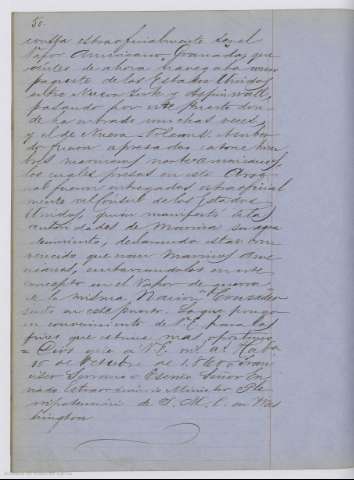 50.
consta estraoficialmente ser el
Vapor Americano "Granada, que
antes de ahora navegaba como
paquete de los Estados Unidos
entre Nueva York y Aspinwall,
pasando por este puerto don-
de ha entrado muchas veces,
y el de Nueva Orleans. A su bor-
do fueron apresados catorce hom-
bres marinos norte-americanos
los cuales presos en este Arse-
nal fueron entregados estraoficial
mente al Consul de los Estados
Unidos, quien manifestó á las
autoridades de Marina su agra-
decimiento, declarando estar con-
vencido que eran Marinos Ame-
ricanos, embarcandolos en ese
concepto en el Vapor de guerra
de la misma Nacion
en este puerto. Lo que pongo
en conocimiento de V.E. para los
fines que estime mas oportunos
= Dios gûe á V.E. ms. as. Haba
15 de Octubre de 1860 = Fran
cisco Serrano = Escmo Señor En
viado Estraordinario y Ministro Ple
nipotenciario de S. M. C. en Was
hington